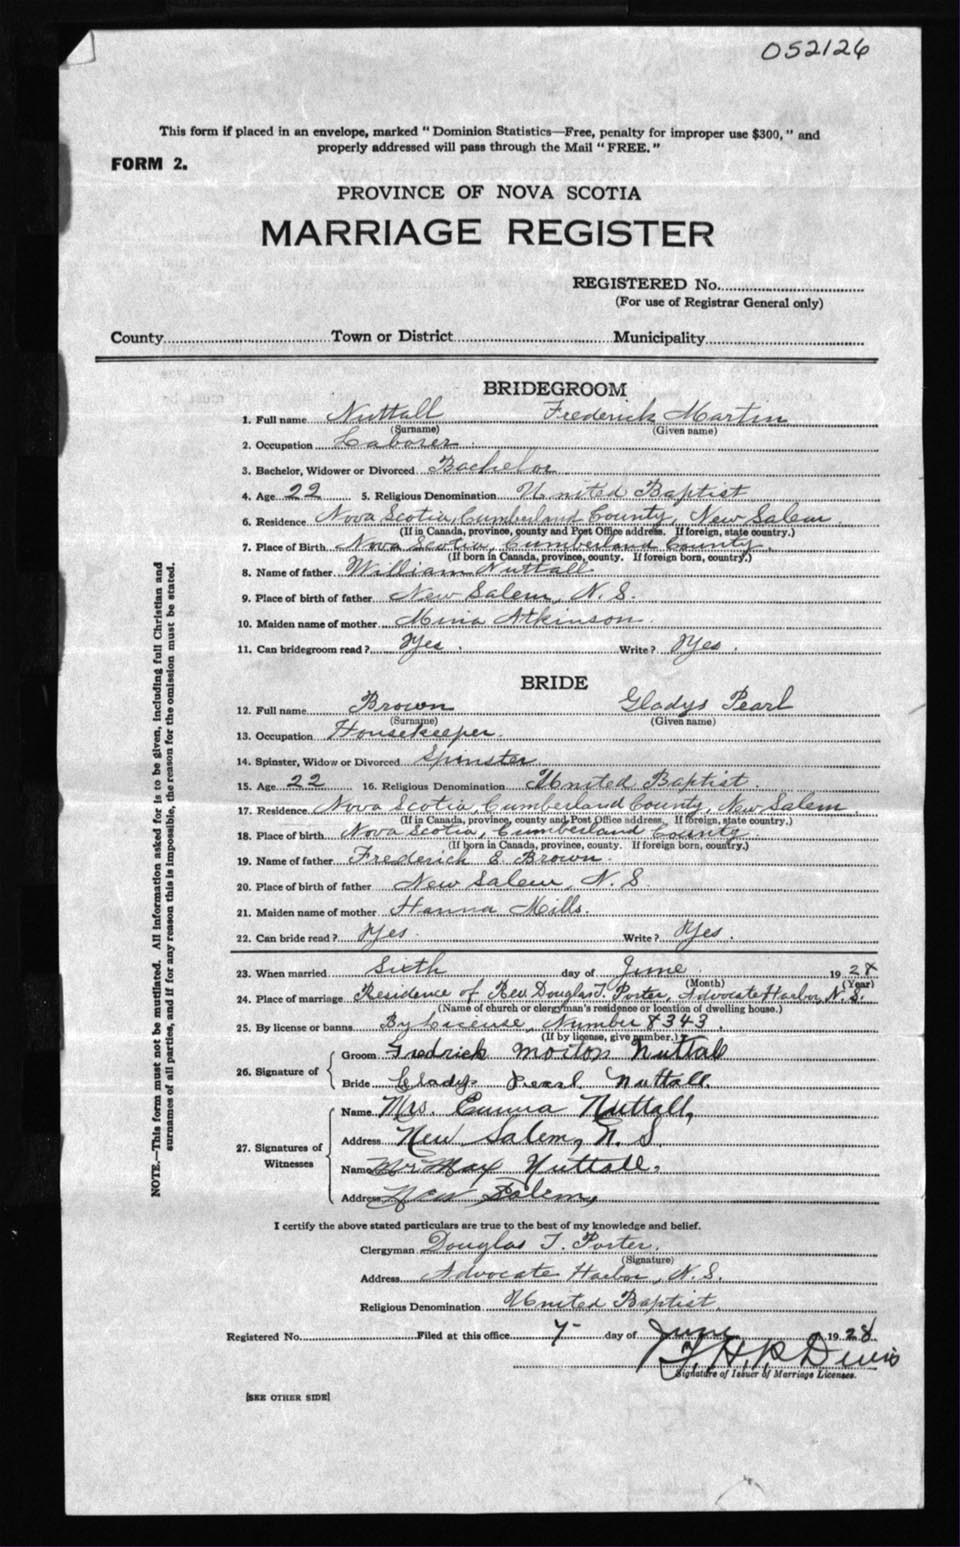 052126
This form if placed in an envelope, marked "Dominion Statistics—Free, penalty for improper use $300," and
properly addressed will pass through the Mail "FREE."
FORM 2.
PROVINCE OF NOVA SCOTIA
MARRIAGE REGISTER
REGISTERED No.
(For use of Registrar General only)
County Town or District Municipality
BRIDEGROOM
1. Full name Nuttall Frederick Martin
(Surname) (Given name)
2. Occupation Laborer.
3. Bachelor, Widower or Divorced Bachelor
4. Age 22 5. Religious Denomination United Baptist
6. Residence Nova Scotia, Cumberland County, New Salem
(If in Canada, province, county and Post Office address. If foreign, state country.)
7. Place of Birth Nova Scotia, Cumberland County.
(If born in Canada, province, county. If foreign born, country.)
8. Name of father William Nuttall
9. Place of birth of father New Salem, N. S.
10. Maiden name of mother Mina Atkinson.
11. Can bridegroom read? Yes. Write? Yes.
BRIDE
12. Full name Brown Gladys Pearl
(Surname) (Given name)
13. Occupation Housekeeper.
14. Spinster, Widow or Divorced Spinster
15. Age 22 16. Religious Denomination United Baptist.
17. Residence Nova Scotia, Cumberland County, New Salem
(If in Canada, province, county and Post Office address. If foreign, state country.)
18. Place of birth Nova Scotia, Cumberland County.
(If born in Canada, province, county. If foreign born, country.)
19. Name of father Frederick E. Brown.
20. Place of birth of father New Salem, N. S.
21. Maiden name of mother Hanna Mills.
22. Can bride read? Yes. Write? Yes.
23. When married Sixth day of June. 1928
(Month) (Year)
24. Place of marriage Residence of Rev. Douglas T. Porter, Advocate Harbor, N. S.
(Name of church or clergyman's residence or location of dwelling house.)
25. By license or banns By License, Number 8343.
(If by license, give number.)
26. Signature of
Groom Fredrick Moiton Nuttall
Bride Gladys Pearl Nuttall
27. Signatures of Witnesses
Name Mrs. Emma Nuttall,
Address New Salem, N. S.
Name Mr Max Nuttall.
Address New Salem,
I certify the above stated particulars are true to the best of my knowledge and belief.
Clergyman Douglas T. Porter.
(Signature)
Address Advocate Harbor, N. S.
Religious Denomination United Baptist.
Registered No. Filed at this office 7- day of June 1928
F. H. P.
Signature of Issuer of Marriage Licenses.
[SEE OTHER SIDE]
NOTE.—This form must not be mutilated. All information asked for is to be given, including full Christian and
surnames of all parties, and if for any reason this is impossible, the reason for the omission must be stated.